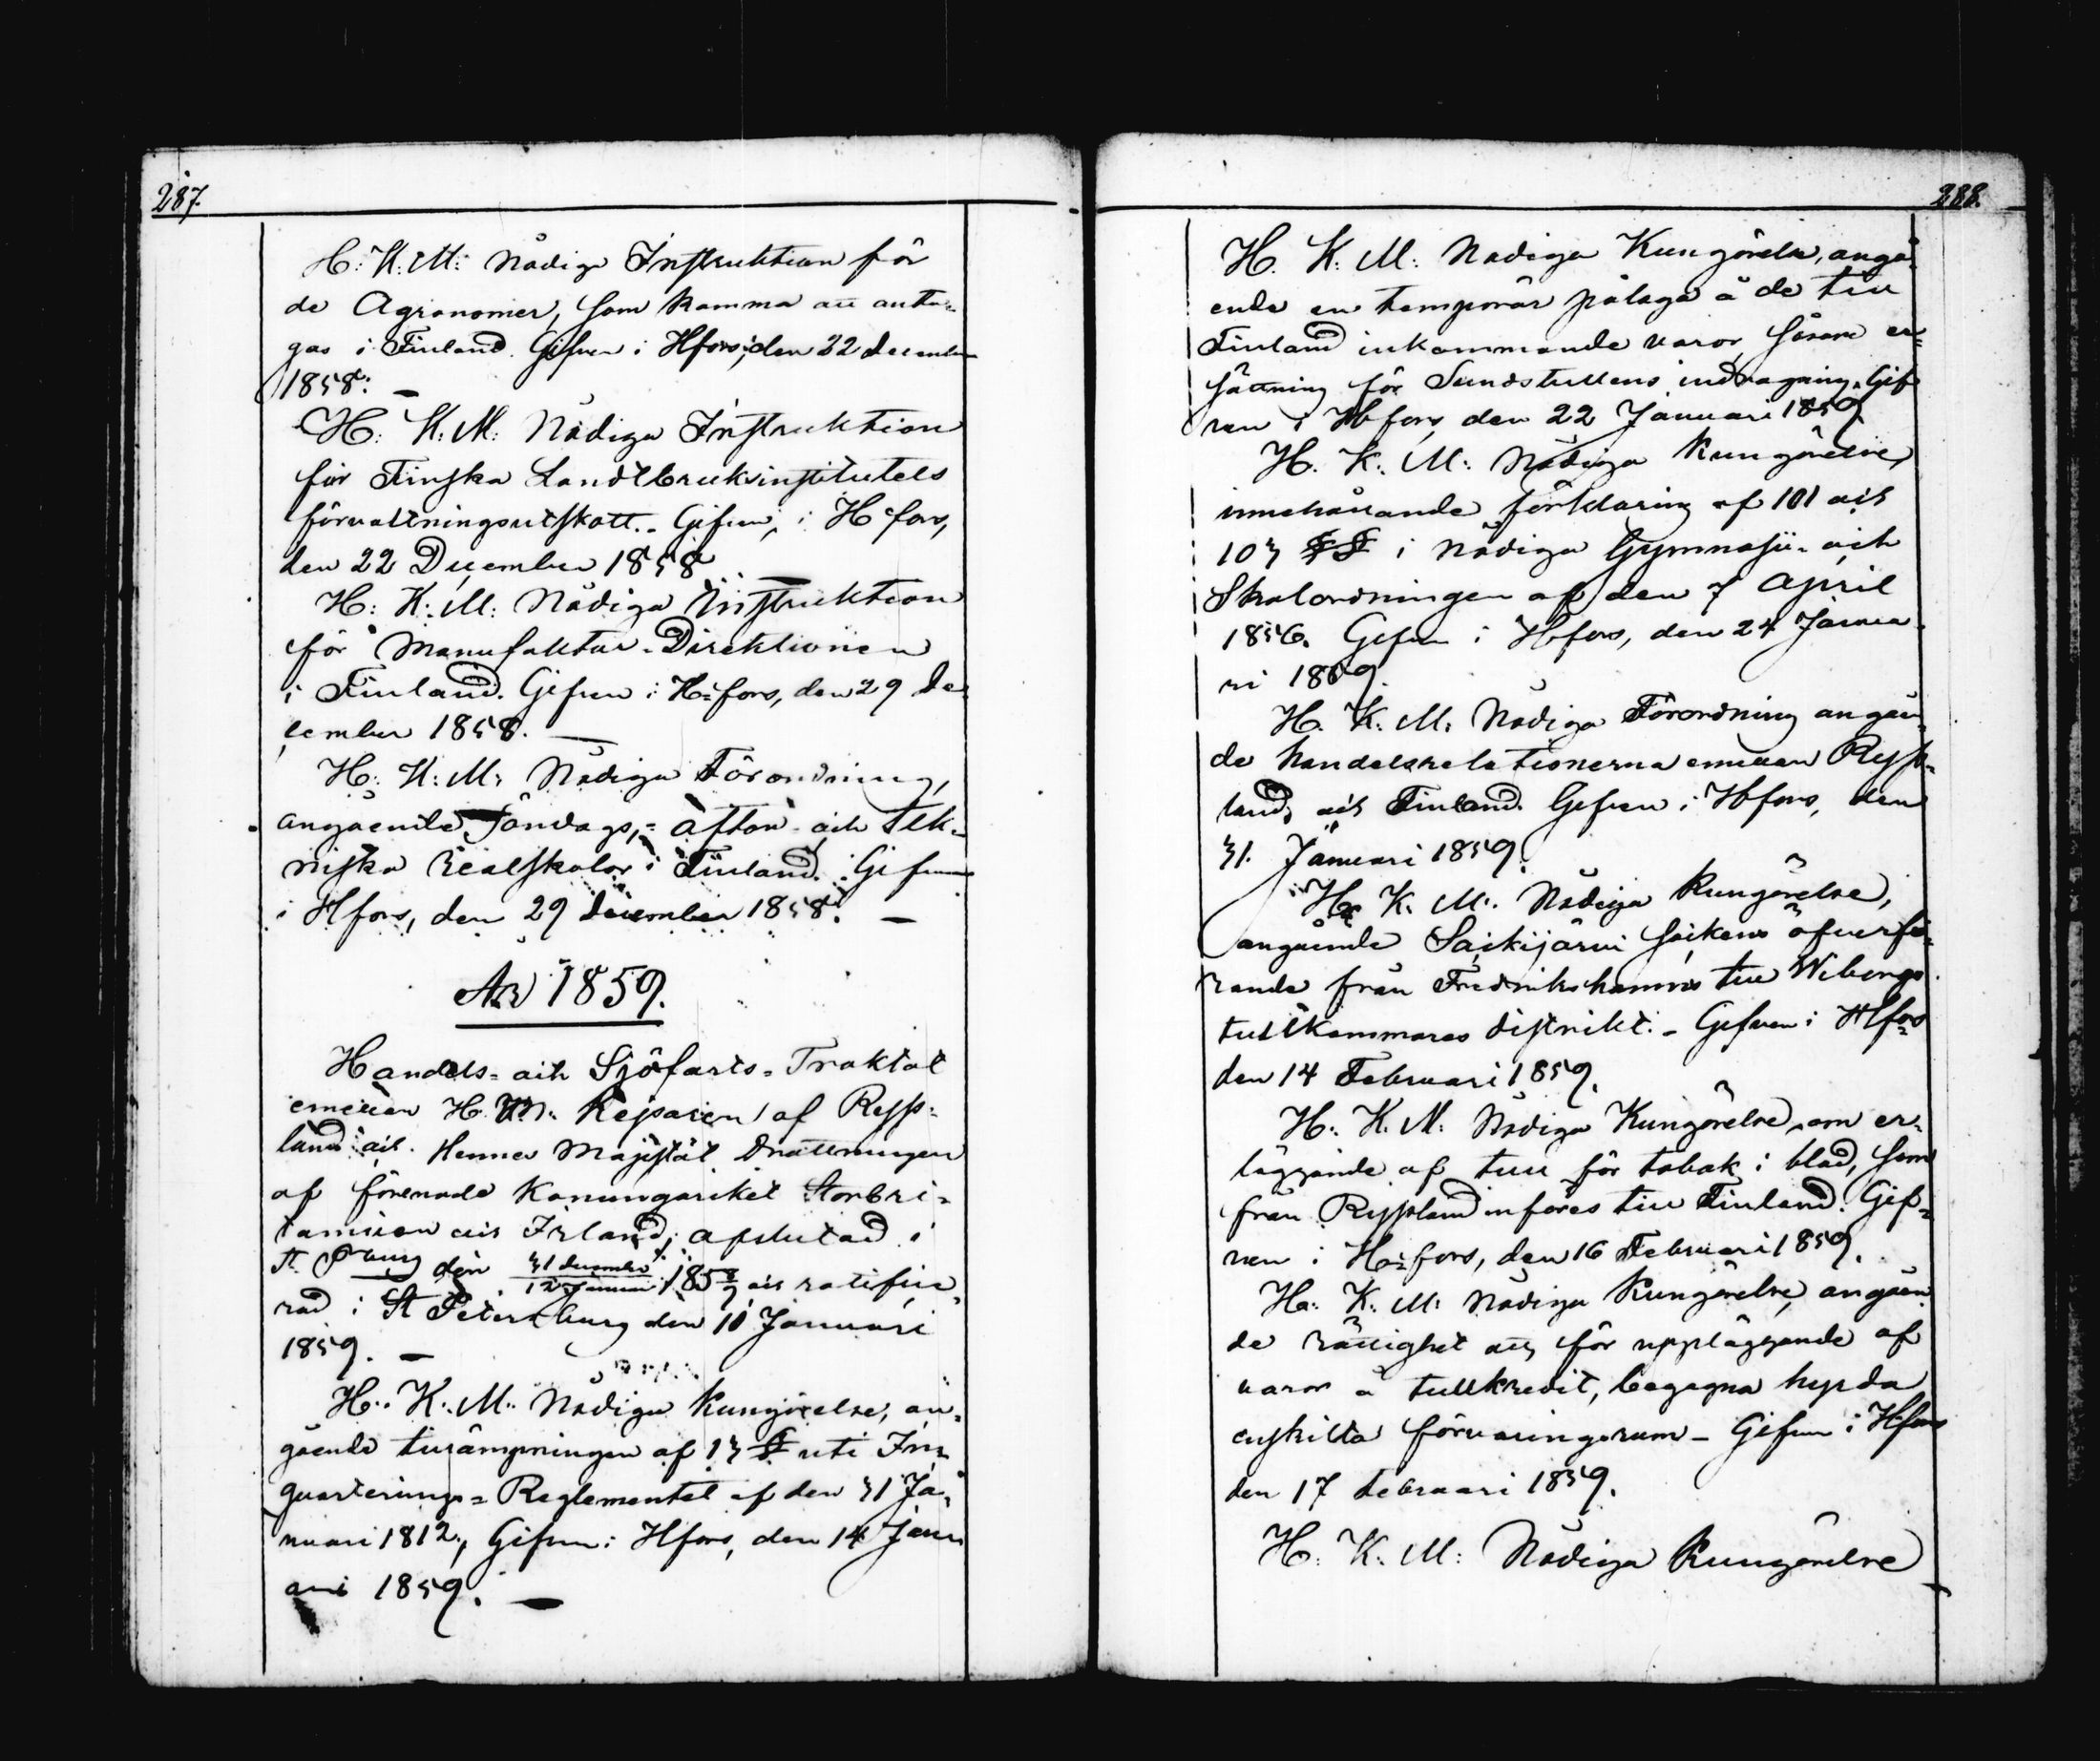 287.
H: K: M: Nådiga Instruktion för
de Agronomer, som komma att anta-
gas i Finland. Gifven i Hfors, den 22 december
1858. —
H: K: M: Nådiga Instruktion
för Finska Landtbruksinstitutets
förvaltningsutskott. - Gifven, i H:fors,
den 22 December 1858 —
H: K: M: Nådiga Instruktion
för Manufaktur-Direktionen
i Finland. Gifven i H:fors, den 29 De
cember 1858. —
H: K: M: Nådiga Förordning,
angående Söndags,- afton- och Tek-
niska realskolor i Finland. Gifven
i Hfors, den 29 december 1858. —
År 1859.
Handels- och Sjöfarts-Traktat
emellan H. M. Kejsaren af Ryss-
land och Hennes Majestät Drottningen
af förenade Konungariket Storbri-
tannien och Irland, afslutad i
St. Pburg den 31 december/12 Januari 1858/9 och ratifice-
rad i St Petersburg den 10 Januari
1859. —
H: K: M: Nådiga Kungörelse, an-
gående tillämpningen af 13 § uti In-
quarterings-Reglementet af den 31 Ja-
nuari 1812, Gifven i Hfors, den 14 Janu
ari 1859. —
288.
H. K: M: Nådiga Kungörelse, angå-
ende en temporär pålaga å de till
Finland inkommande varor, såsom er-
sättning för Sundstullens indragning. Gif
ven i Hfors, den 22 Januari 1859
H. K: M: Nådiga Kungörelse,
innehållande förklaring af 101 och
103 §§ i Nådiga Gymnasii- och
Skolordningen af den 7 April
1856. Gifven i Hfors, den 24 Janua-
ri 1859.
H. K: M: Nådiga Förordning angåen-
de handelsrelationerna emellan Ryss-
land, och Finland. Gifven i Hfors, den
31. Januari 1859.
H. K. M: Nådiga Kungörelse,
angående Säckijärvi Sockens öfverfö-
rande från Fredrikshamns till Wiborgs
tullkammares distrikt. - Gifven i Hfors
den 14 Februari 1859.
H: K. M: Nådiga Kungörelse, om er-
läggande af tull för tobak i blad, som
från Ryssland införes till Finland. Gif-
ven i H:fors, den 16 Februari 1859.
H: K: M: Nådiga Kungörelse, angåen
de rättighet att, för uppläggande af
varor å tullkredit, begagna hyrda
enskilda förvaringsrum - Gifven i Hfors
den 17 februari 1859.
H: K: M: Nådiga Kungörelse